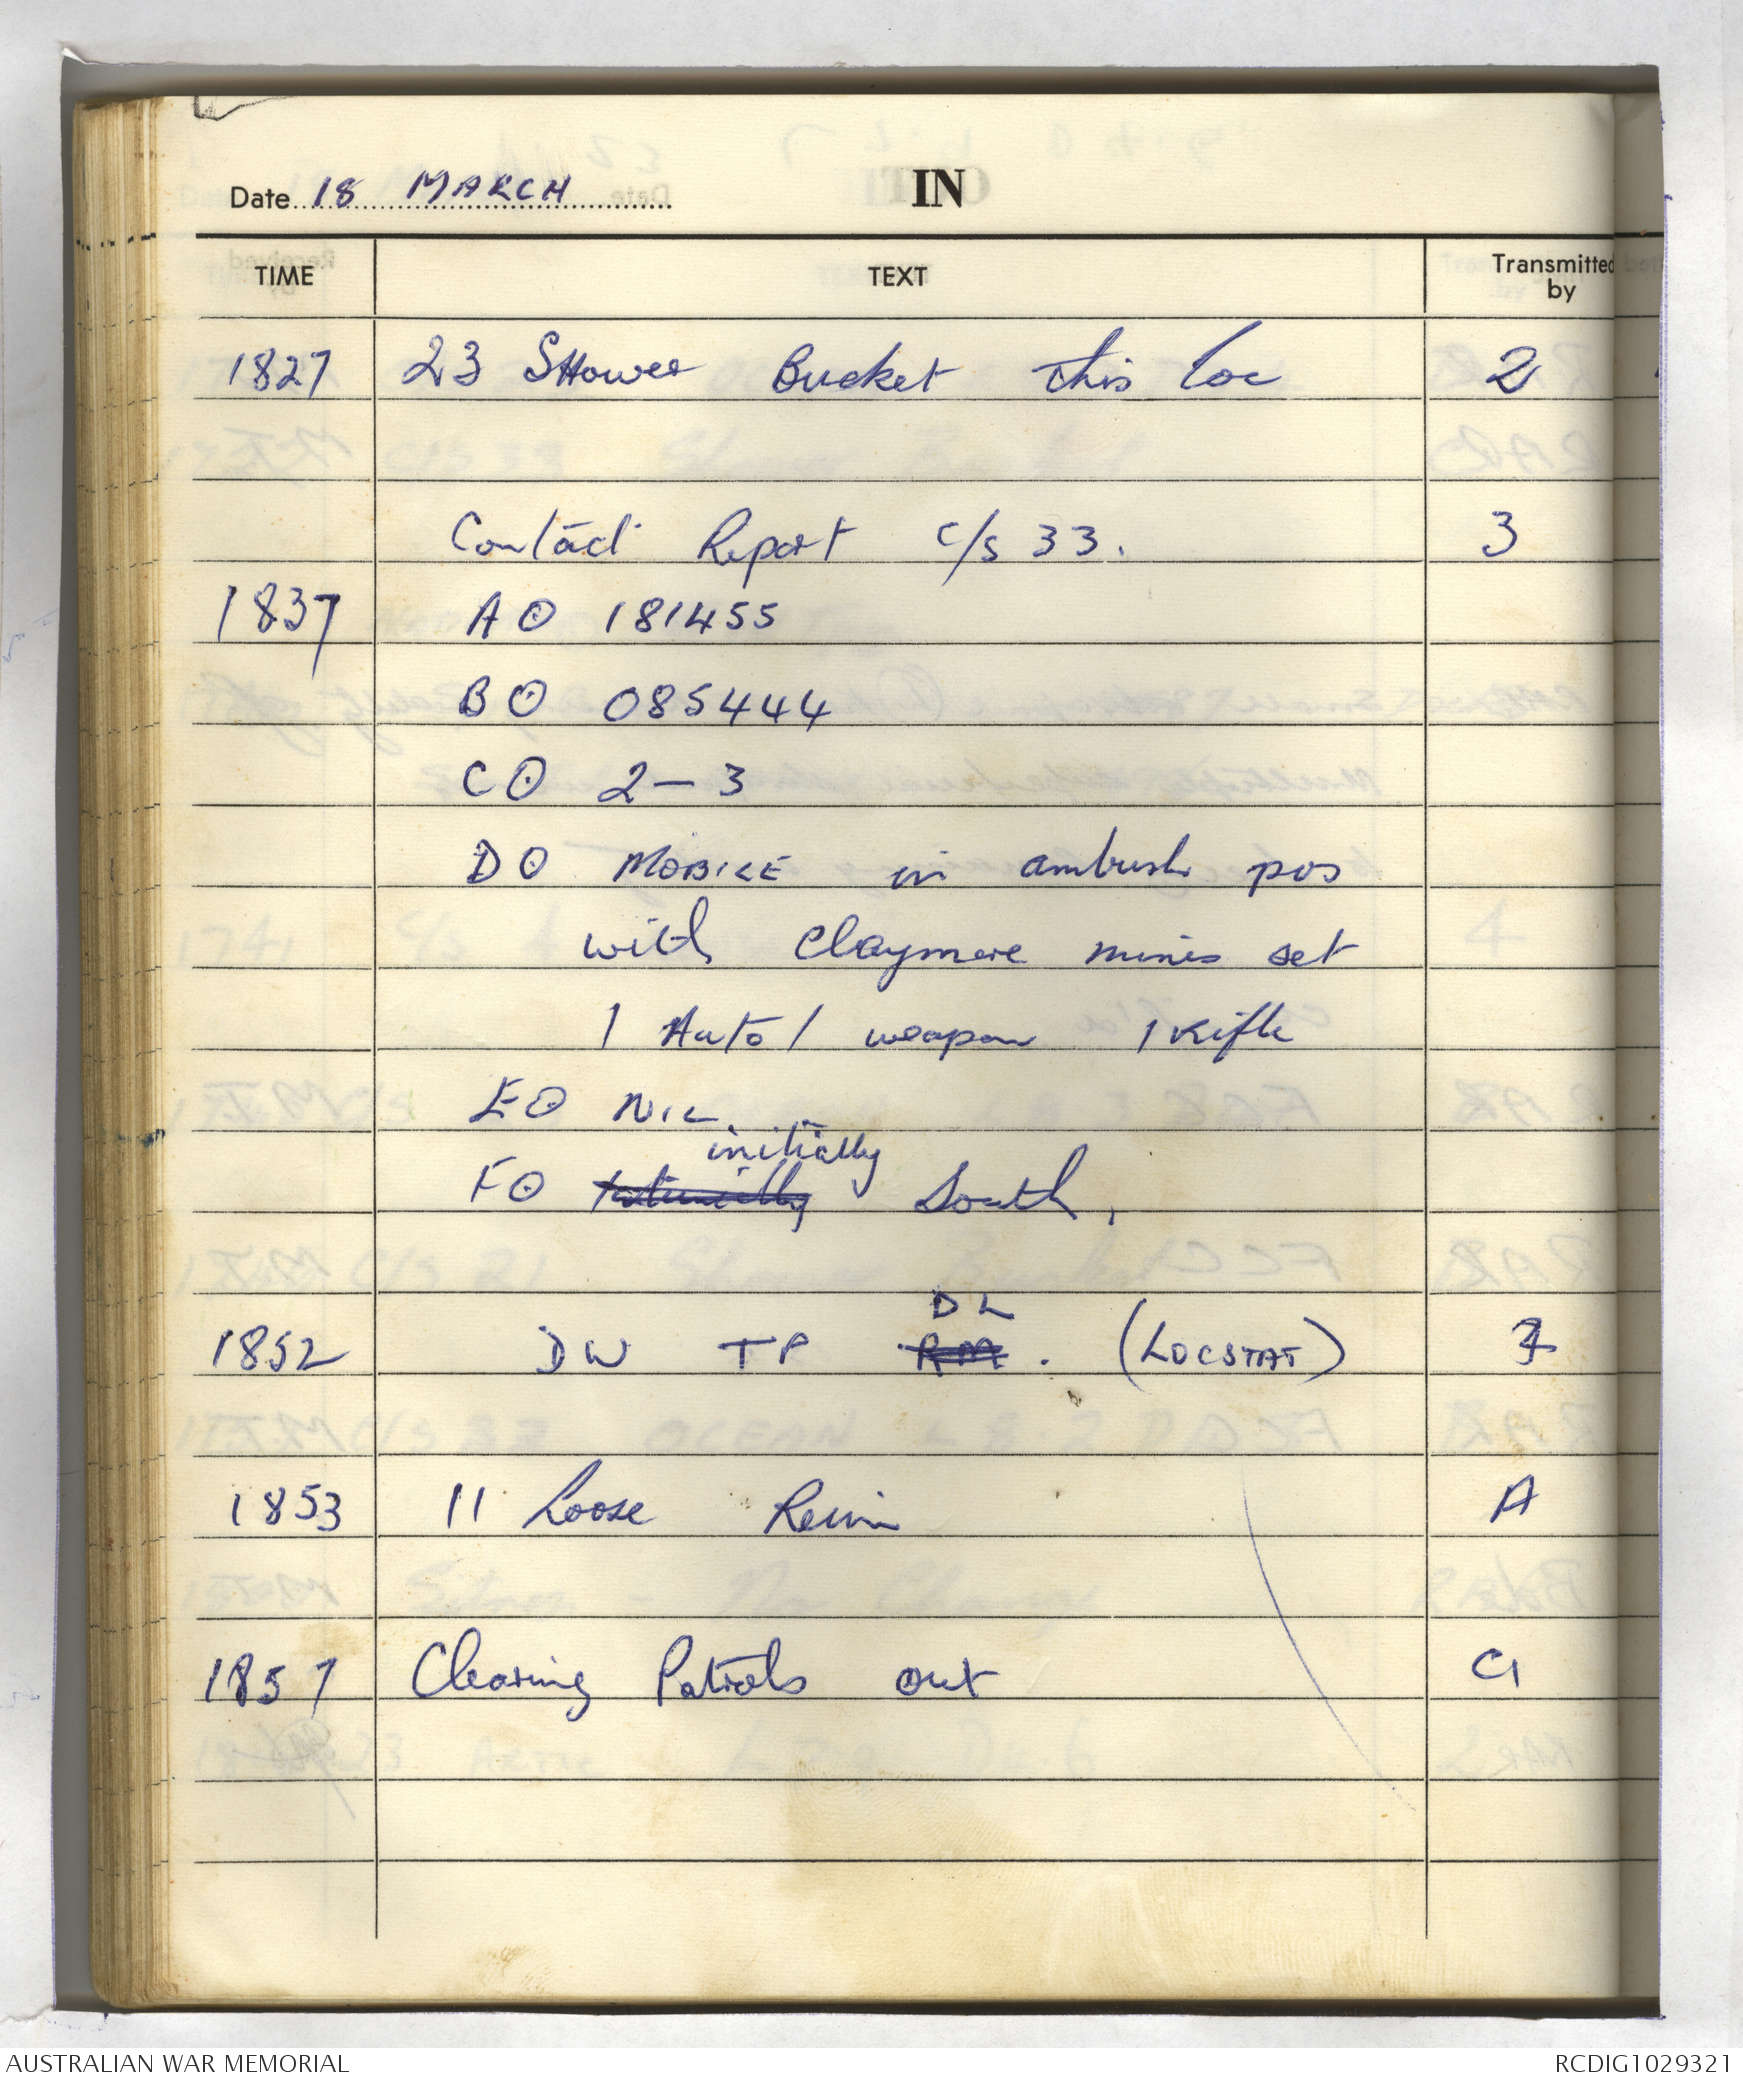 Date 18 MARCH IN
TIME TEXT Transmitted by
1827 23 SHower Bucket this loc 2
Contact Report c/s 33. 3
1837 A⊙ 181455
B⊙ 085444
C⊙ 2-3
D⊙ MOBILE in ambush pos
with Claymore mines set
1 Auto/ weapon 1 Rifle
E⊙ NIL
initially
F⊙ South,
DL
1852 DW TP RM. (LOCSTAT) 3
1853 11 Loose Rein A
1857 Clearing Patrols out
AUSTRALIAN WAR MEMORIAL RCDIG1029321